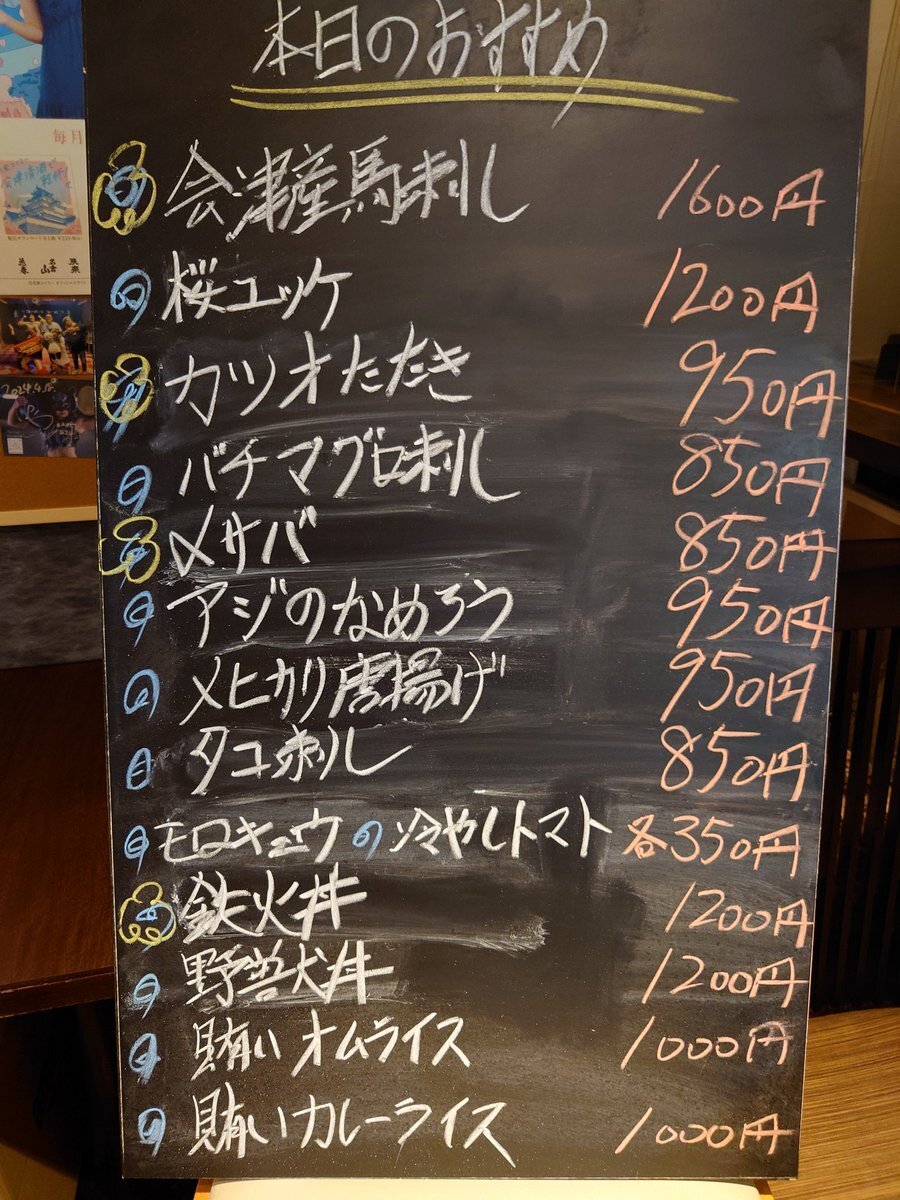 本日のおすすめ
会津産馬刺し 1600円
桜ユッケ 1200円
カツオたたき 950円
バチマグロ刺し 850円
〆サバ 850円
アジのなめろう 950円
メヒカリ唐揚げ 950円
タコ刺し 850円
モロキュウ 冷やしトマト 各350円
鉄火丼 1200円
野獣丼 1200円
賄いオムライス 1000円
賄いカレーライス 1000円
毎月
2024.4.